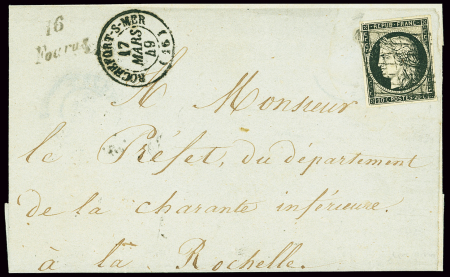 16
Fouras
ROCHEFORT-S-MER (16)
17
MARS
49
REPUB. FRANC.
20 C. POSTES 20 C.
A Monsieur
le Préfet, du département
de la charante inférieure.
à la Rochelle.